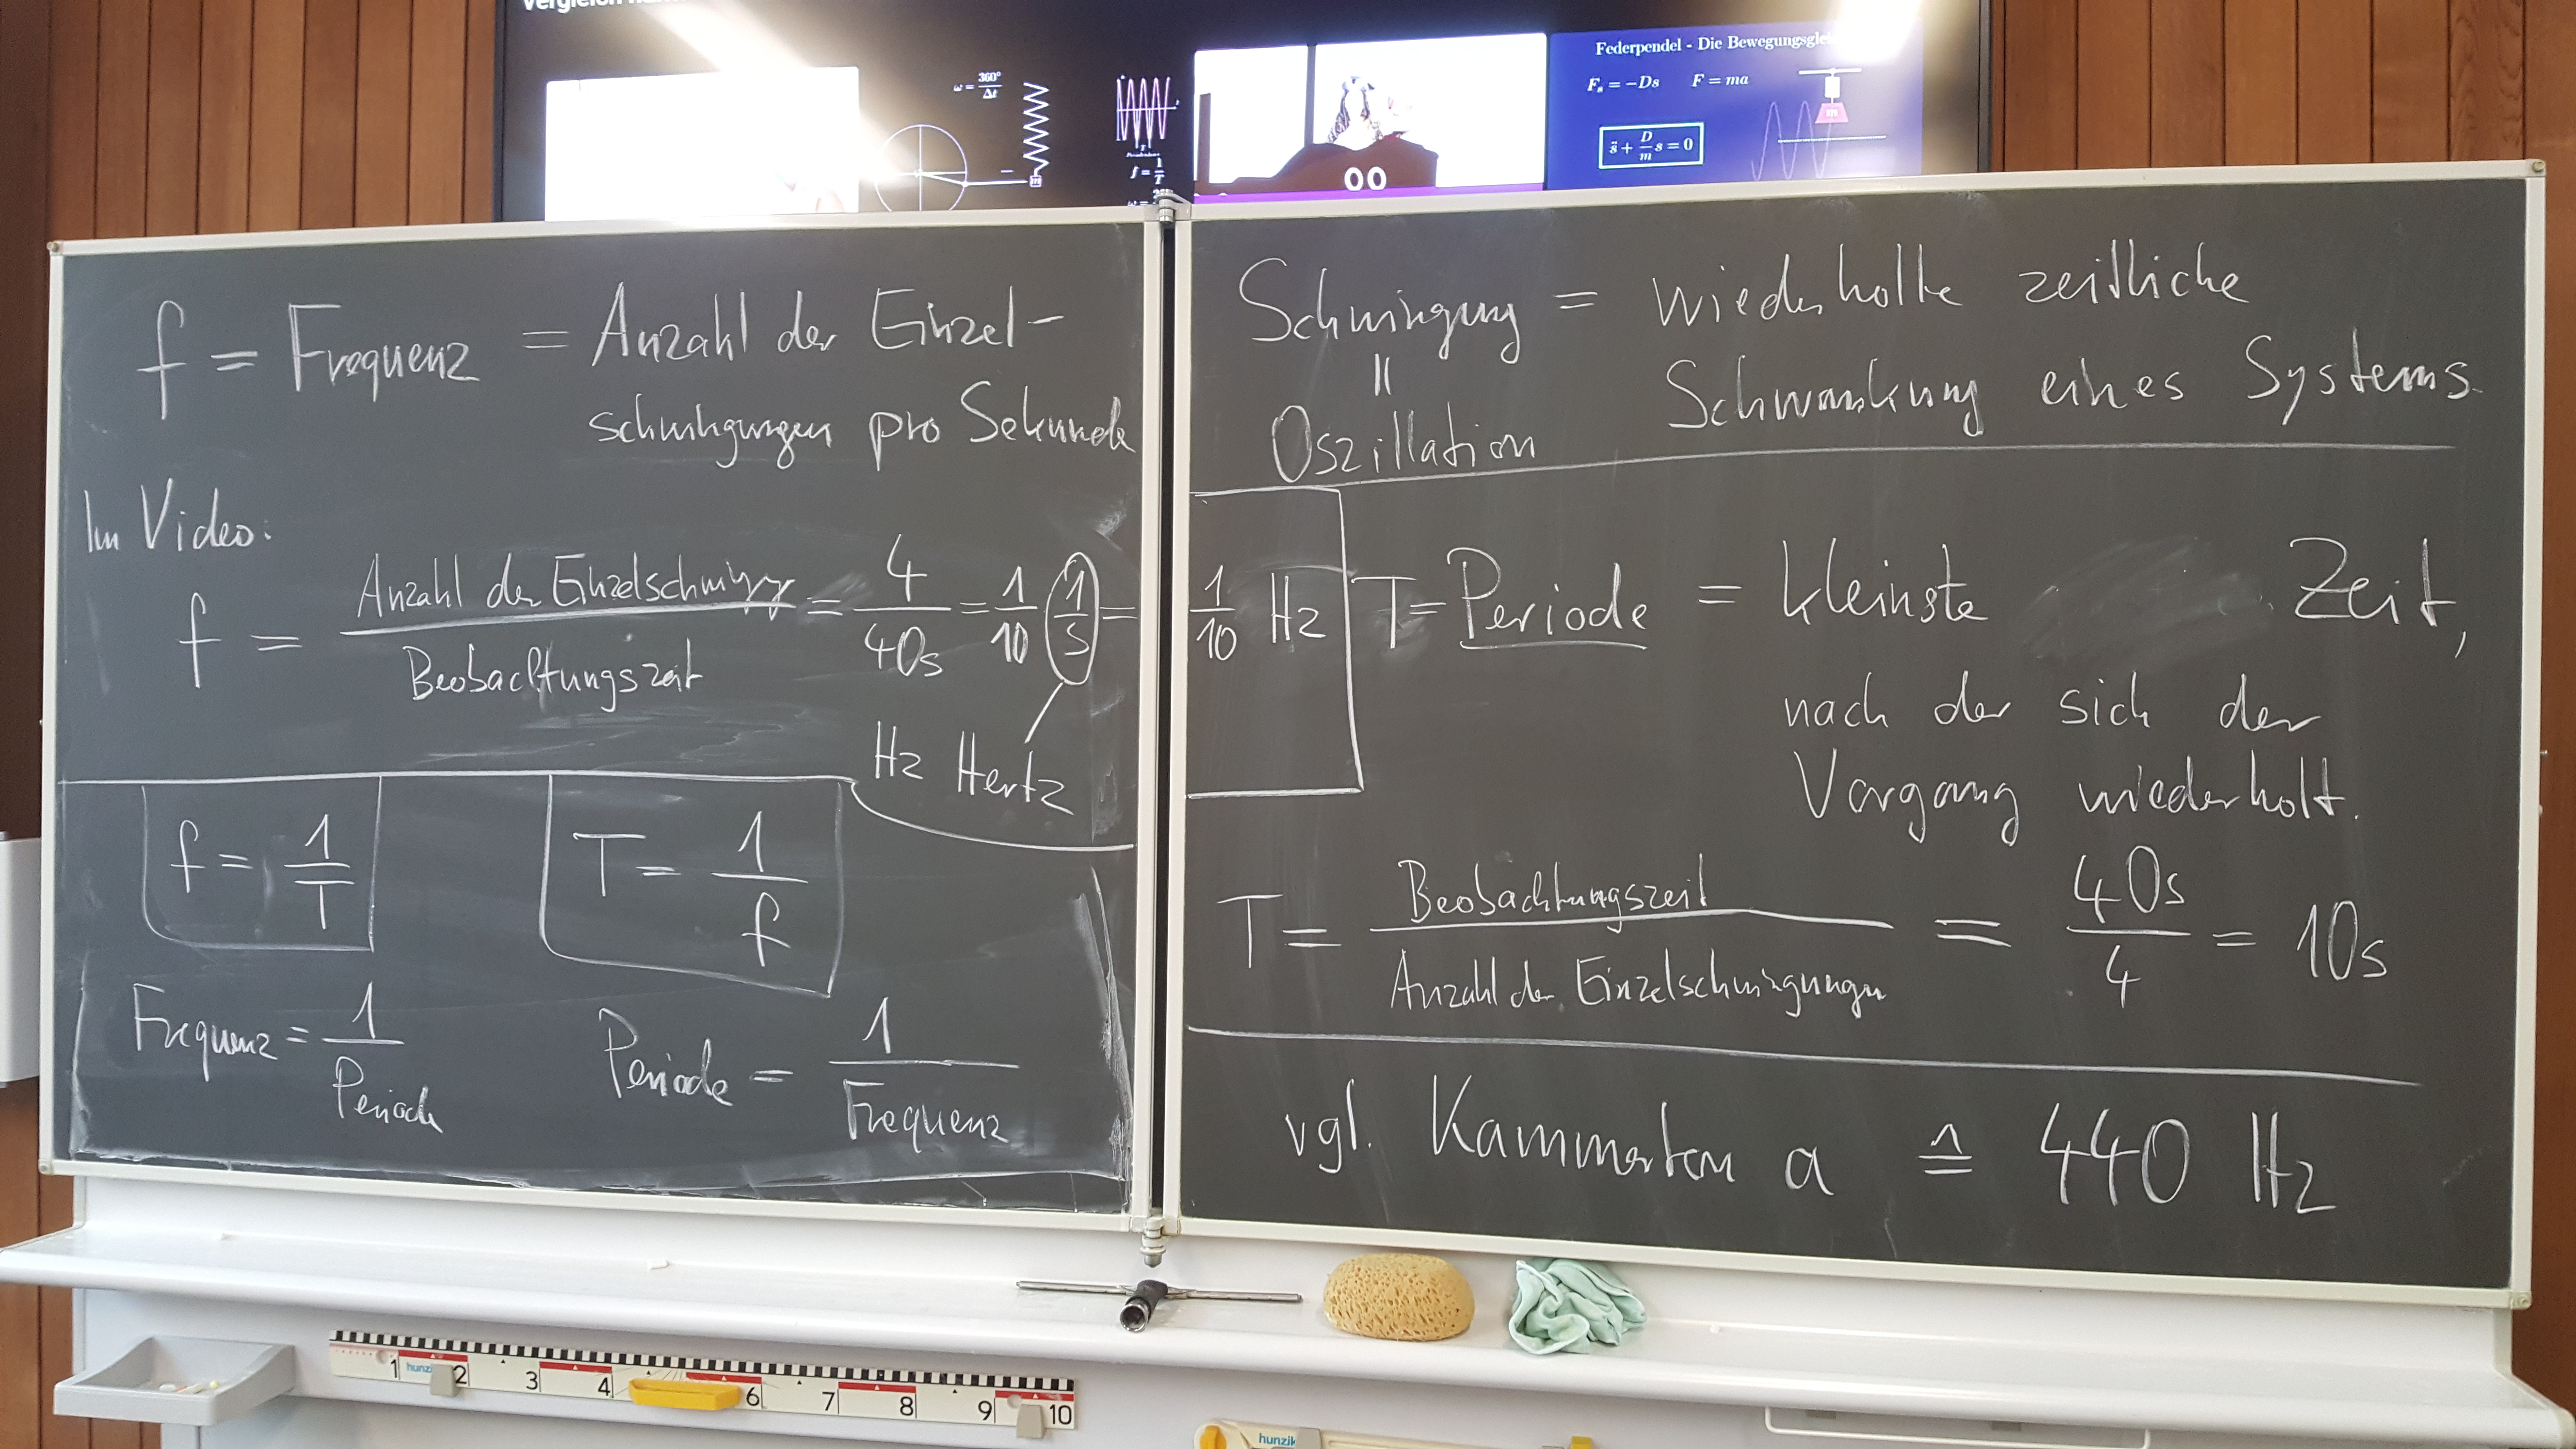 Federpendel - Die Bewegungsglei
F_s = -Ds F = ma
s̈ + D/m s = 0
ω = 360°/Δt
f = 1/T
f = Frequenz = Anzahl der Einzel-
schwingungen pro Sekunde
Im Video:
f = Anzahl der Einzelschwingg / Beobachtungszeit = 4/40s = 1/10 1/s = 1/10 Hz
Hz Hertz
f = 1/T T = 1/f
Frequenz = 1/Periode Periode = 1/Frequenz
Schwingung = wiederholte zeitliche
Schwankung eines Systems
=
Oszillation
T = Periode = kleinste Zeit,
nach der sich der
Vorgang wiederholt.
T = Beobachtungszeit / Anzahl der Einzelschwingungen = 40s/4 = 10s
vgl. Kammerton a ≙ 440 Hz
1 hunzi 2 3 4 6 7 8 9 10
hunzik